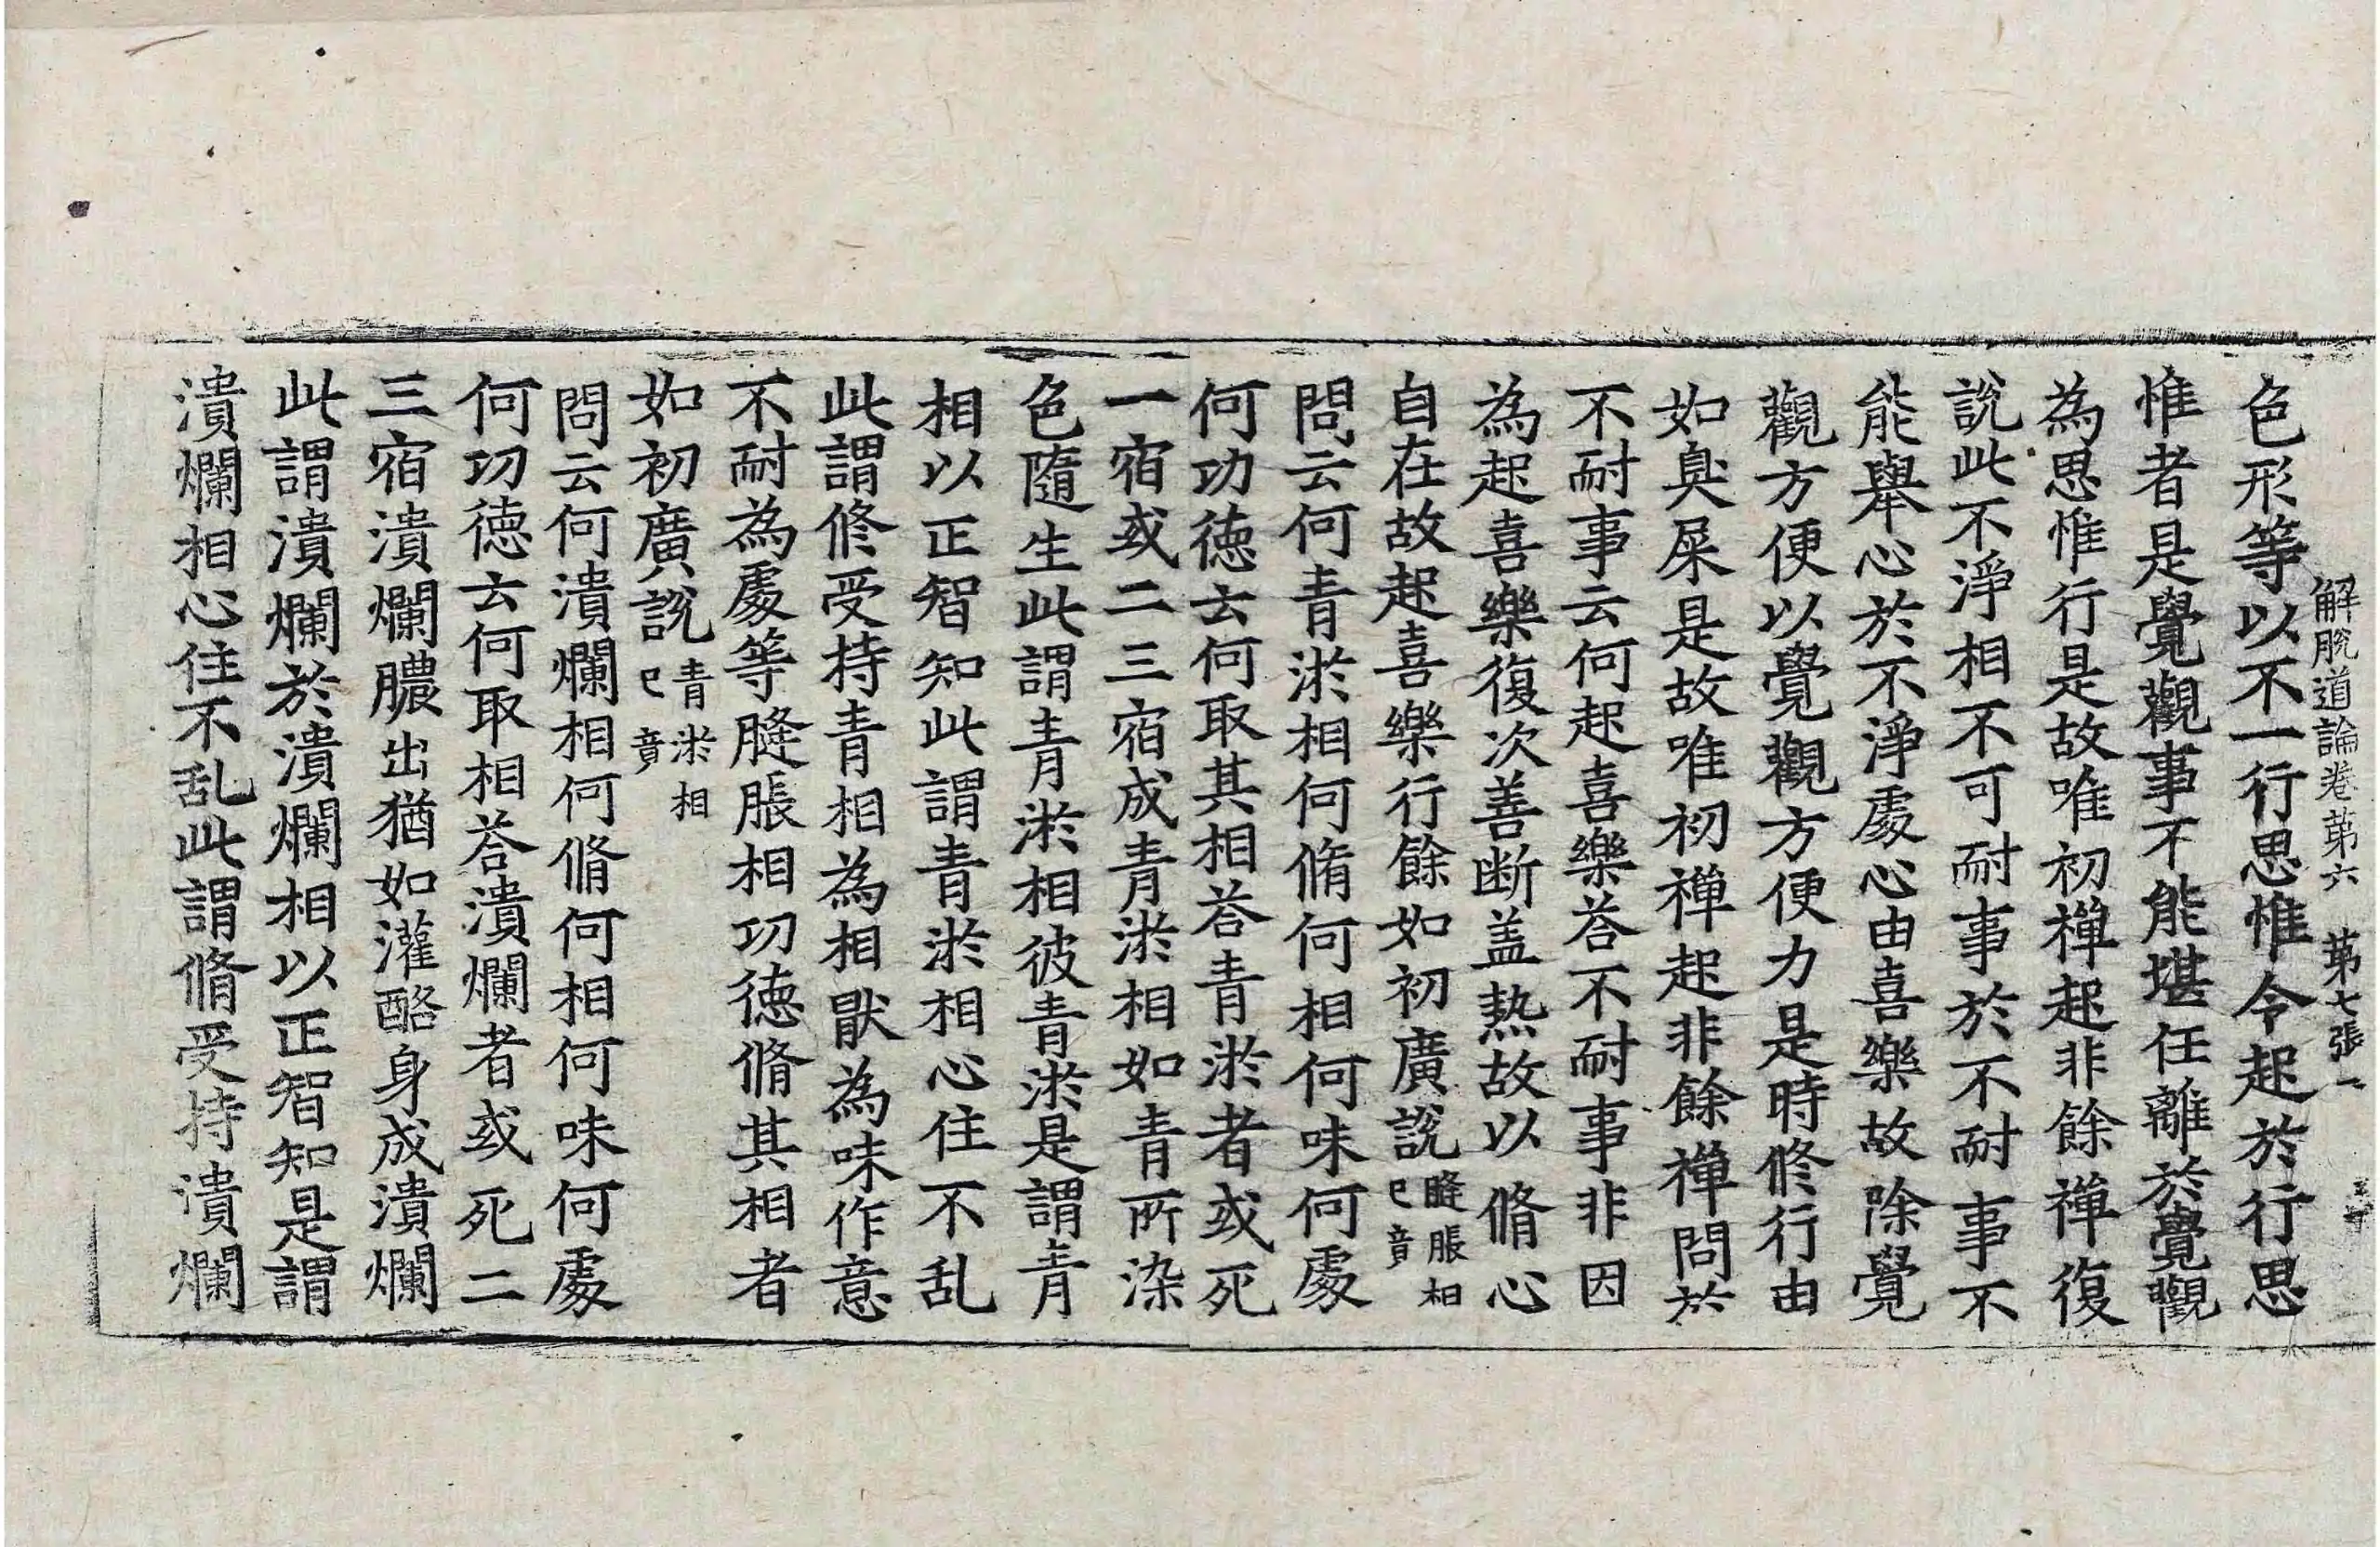 解脫道論卷第六　第七張
色形等以不一行思惟令起於行思
惟者是覺觀事不能堪任離於覺觀
為思惟行是故唯初禪起非餘禪復
說此不淨相不可耐事於不耐事不
能舉心於不淨處心由喜樂故除覺
觀方便以覺觀方便力是時修行由
如臭屎是故唯初禪起非餘禪問於
不耐事云何起喜樂荅不耐事非因
為起喜樂復次善断盖熱故以脩心
自在故起喜樂行餘如初廣說膖脹相已竟
問云何青淤相何脩何相何味何處
何功徳云何取其相荅青淤者或死
一宿或二三宿成青淤相如青所染
色隨生此謂青淤相彼青淤是謂青
相以正智知此謂青淤相心住不乱
此謂修受持青相為相猒為味作意
不耐為處等膖脹相功徳脩其相者
如初廣說青淤相已竟
問云何潰爛相何脩何相何味何處
何功徳云何取相荅潰爛者或死二
三宿潰爛膿出猶如灌酪身成潰爛
此謂潰爛於潰爛相以正智知是謂
潰爛相心住不乱此謂脩受持潰爛